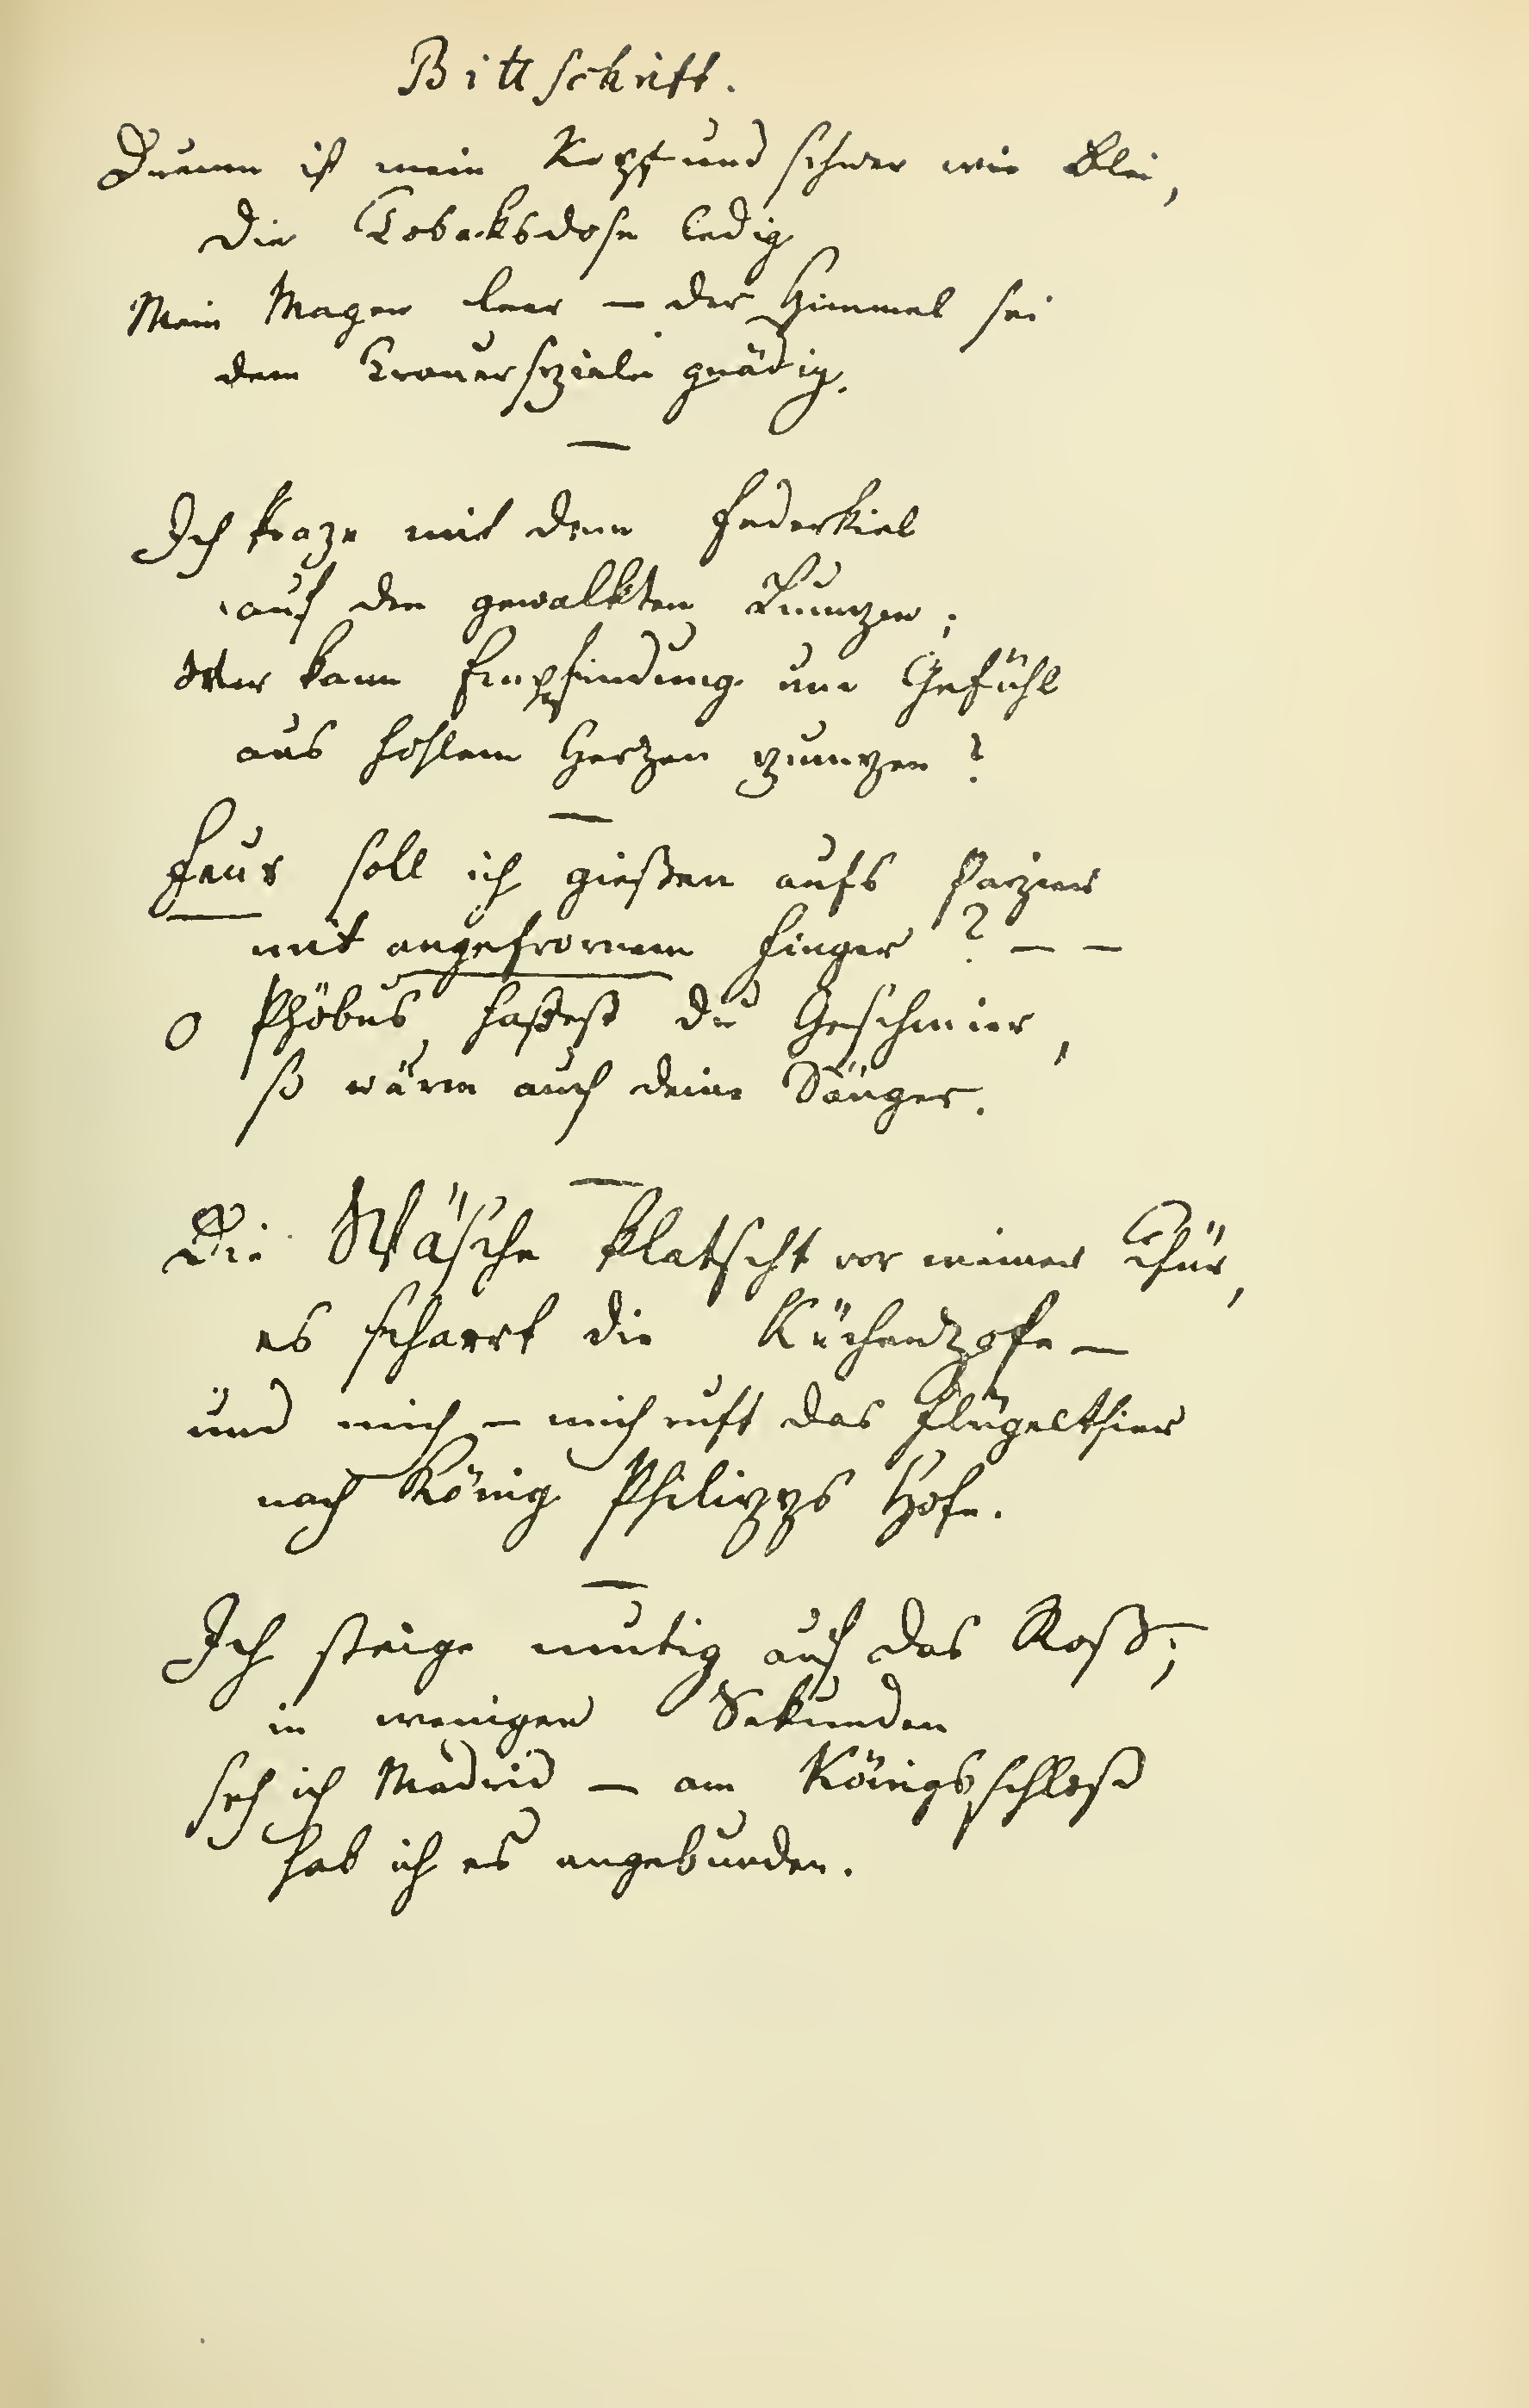 Bittschrift.
Dumm ist mein Kopf und schwer wie Blei,
die Tobaksdose ledig
Mein Magen leer — der Himmel sei
dem Trauerspiele gnädig.
—
Ich kraze mit dem Federkiel
auf den gewalkten Lumpen;
Wer kann Empfindung und Gefühl
aus hohlem Herzen pumpen?
—
Feur soll ich gießen aufs Papier
mit angefrornem Finger? — —
O Phöbus haßest du Geschmier,
so wärm auch deine Sänger.
—
Die Wäsche klatscht vor meiner Thür,
es scharrt die Küchenzofe —
und mich — mich ruft das Flügelthier
nach König Philipps Hofe.
—
Ich steige mutig auf das Roß;
in wenigen Sekunden
seh ich Madrid — am Königsschloß
hab ich es angebunden.